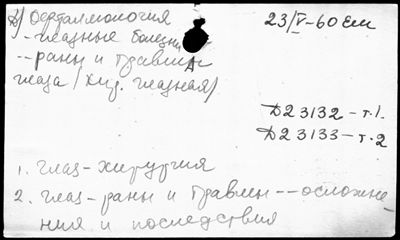 в) Офталмология 23/V-60 Ем
- глазные болезни
-- раны и травмы
глаза (хир. глазная)
Д23132 - т.1.
Д23133 - т.2
1. глаз - хирургия
2. глаз - раны и травмы -- осложне-
ния и последствия